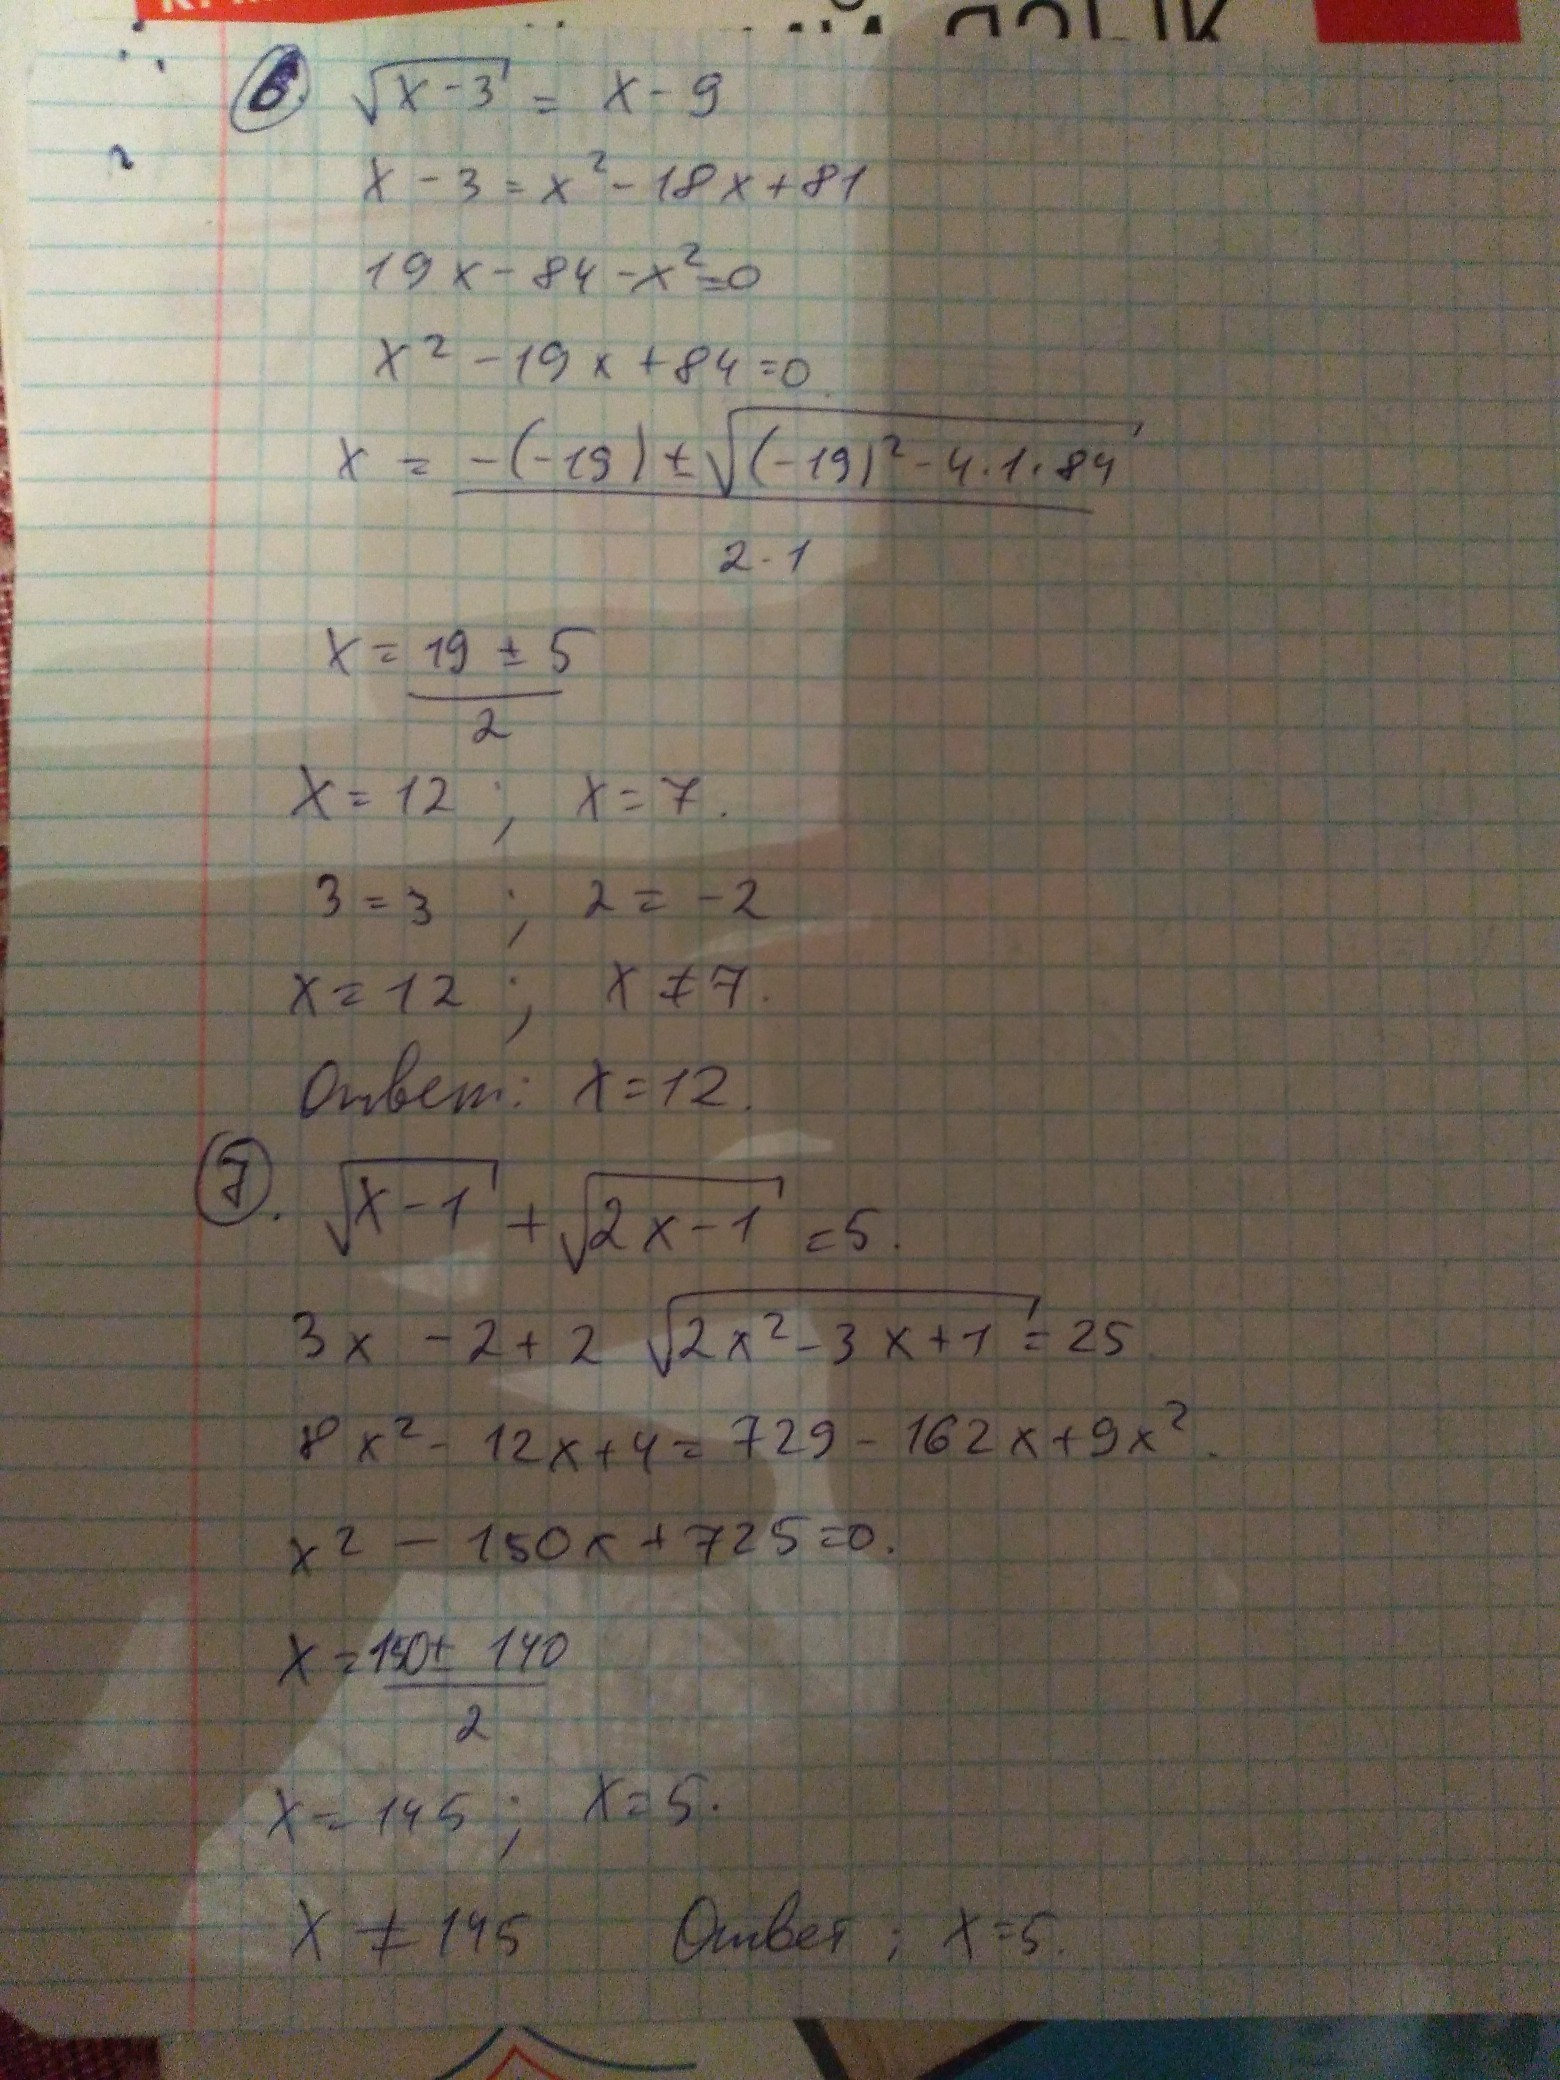 6. √(x-3) = x-9
x-3 = x²-18x+81
19x-84-x²=0
x²-19x+84=0
x = (-(-19) ± √((-19)²-4·1·84)) / (2·1)
x = (19 ± 5) / 2
x=12 ; x=7.
3=3 ; 2=-2
x=12 ; x≠7.
Ответ: x=12.
7. √(x-1) + √(2x-1) = 5.
3x-2+2√(2x²-3x+1) = 25
8x²-12x+4=729-162x+9x².
x²-150x+725=0.
x = (150 ± 140) / 2
x=145 ; x=5.
x≠145 Ответ ; x=5.